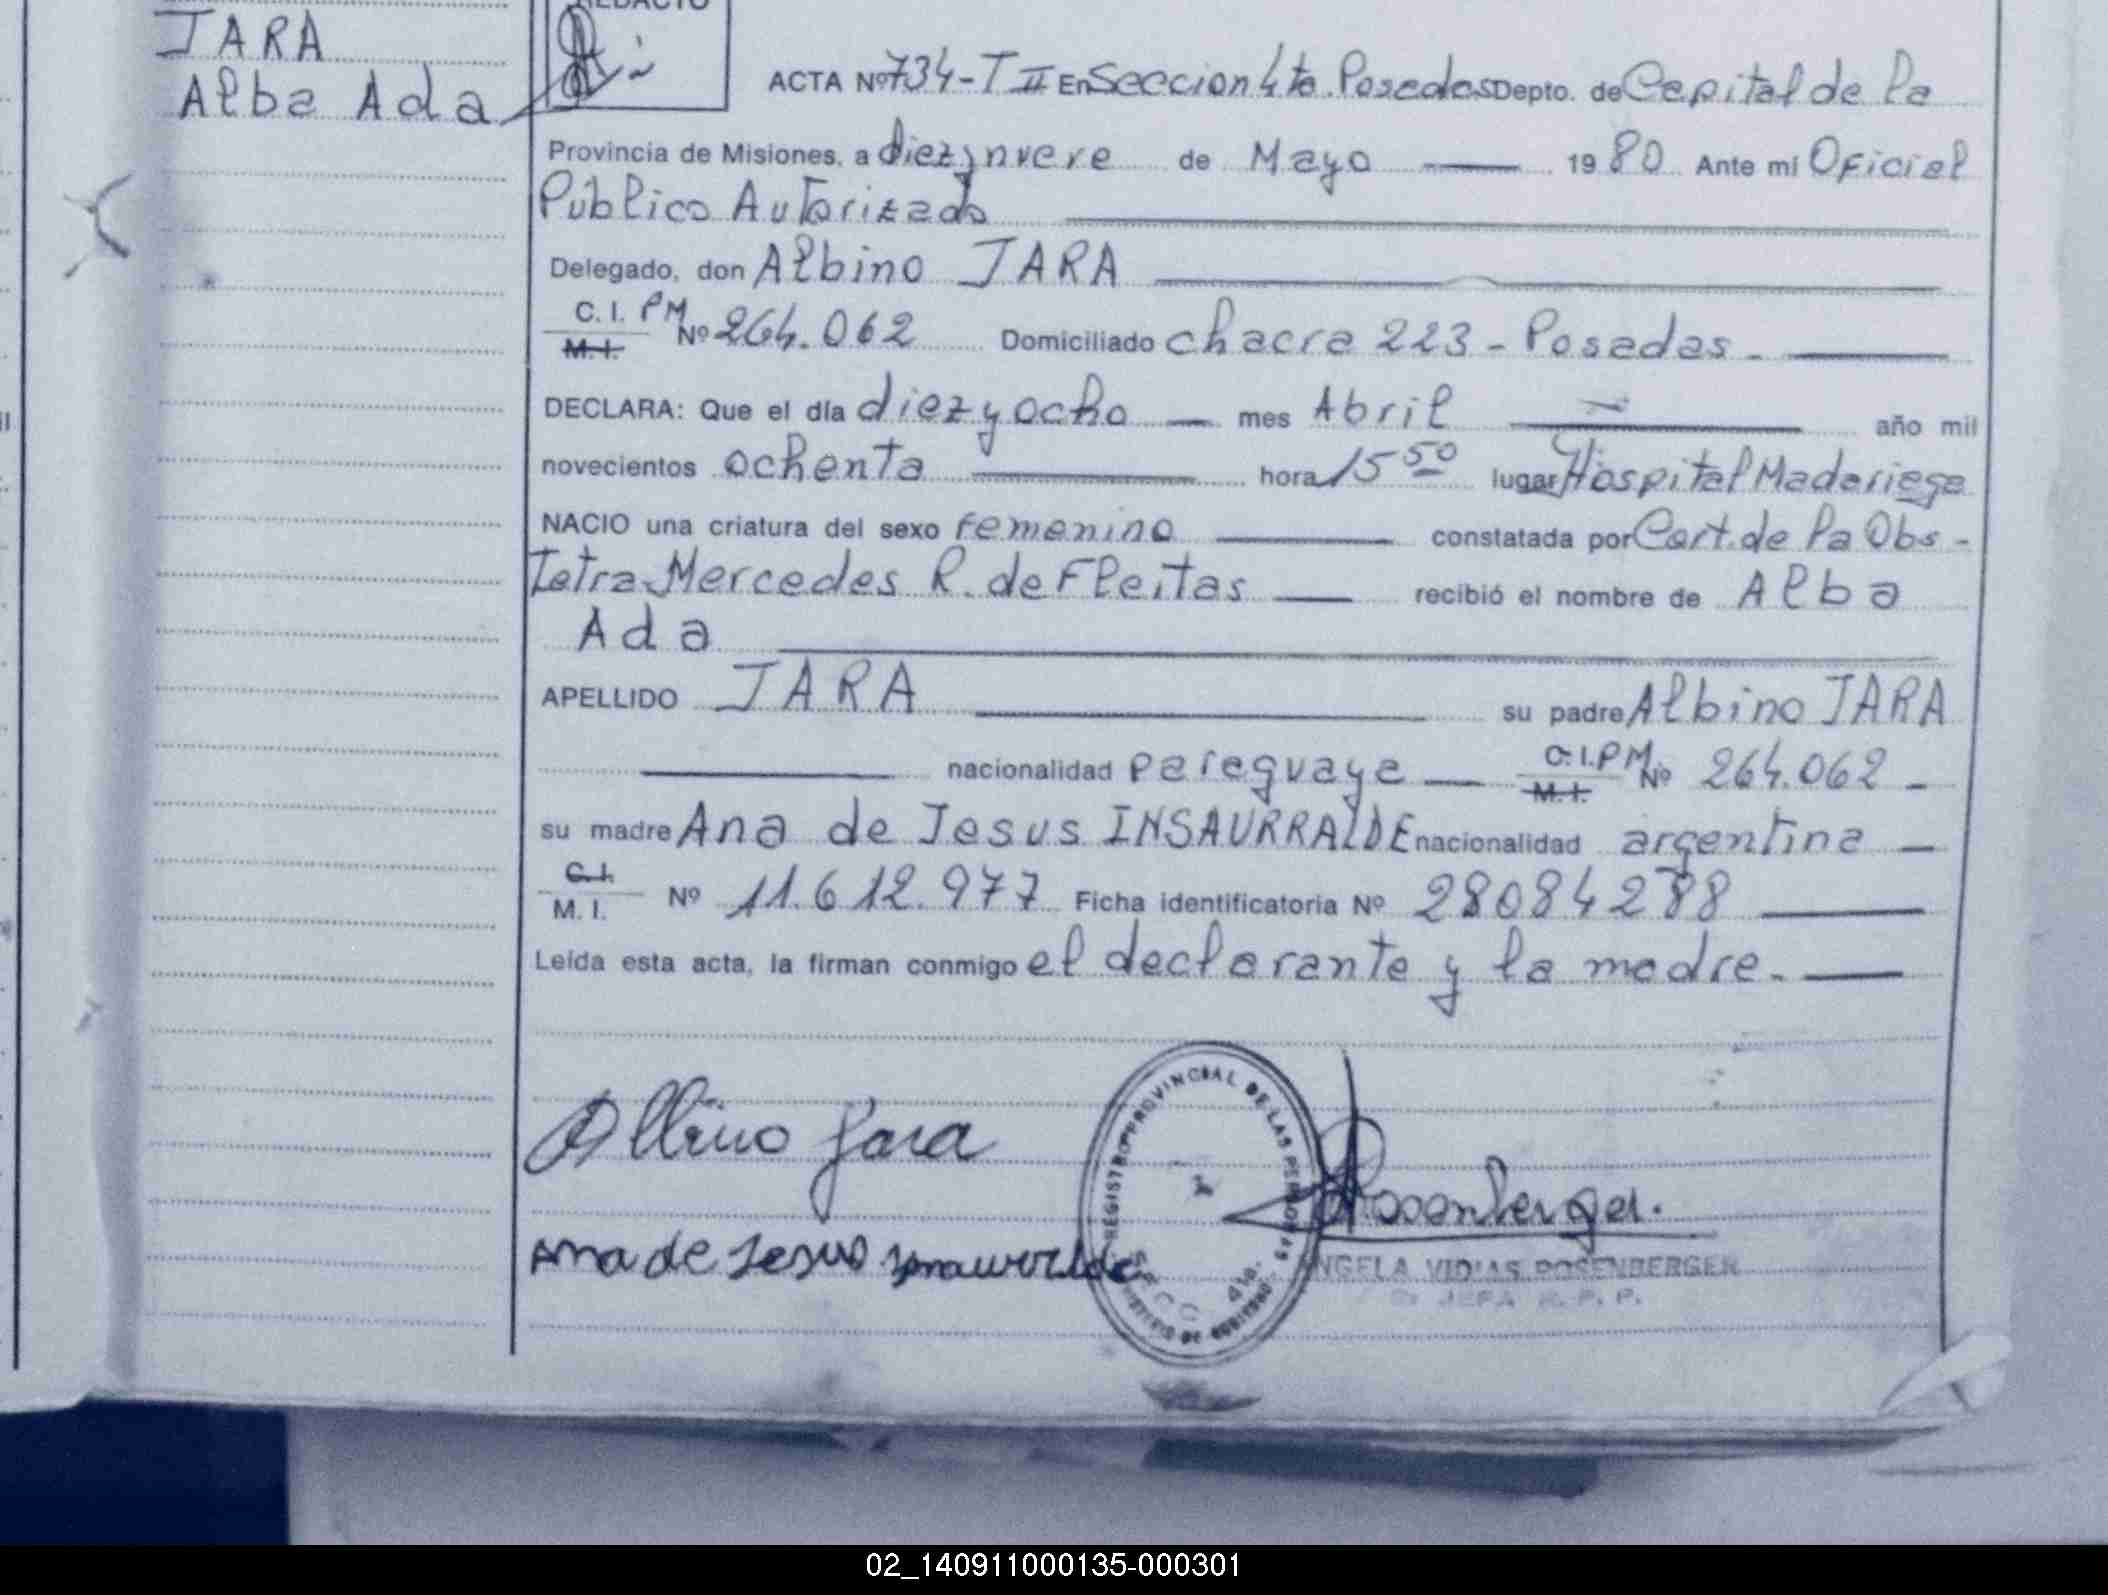 JARA
Alba Ada
REDACTO
ACTA Nº 734-T II En Seccion 4ta. Posadas Depto. de Capital de la
Provincia de Misiones, a diez y nueve de Mayo — 1980 Ante mi Oficial
Público Autorizado
Delegado, don Albino JARA
C. I. PM
M. I. Nº 264.062 Domiciliado chacra 223 - Posadas -
DECLARA: Que el día diez y ocho — mes Abril — año mil
novecientos ochenta — hora 15 50 lugar Hospital Madariaga
NACIO una criatura del sexo femenino — constatada por Cert. de la Obs-
tetra Mercedes R. de Fleitas — recibió el nombre de Alba
Ada
APELLIDO JARA — su padre Albino JARA
— nacionalidad paraguaya — C. I. PM
M. I. Nº 264.062 -
su madre Ana de Jesus INSAURRALDE nacionalidad argentina —
C. I.
M. I. Nº 11.612.977 Ficha identificatoria Nº 28084288 —
Leída esta acta, la firman conmigo el declarante y la madre. —
Albino Jara
REGISTRO PROVINCIAL DE LAS PERSONAS
SECC. 4ta.
Rosenberger.
Ana de Jesus Insaurralde
ANGELA VIDIAS ROSENBERGER
JEFA R. P. P.
02_140911000135-000301